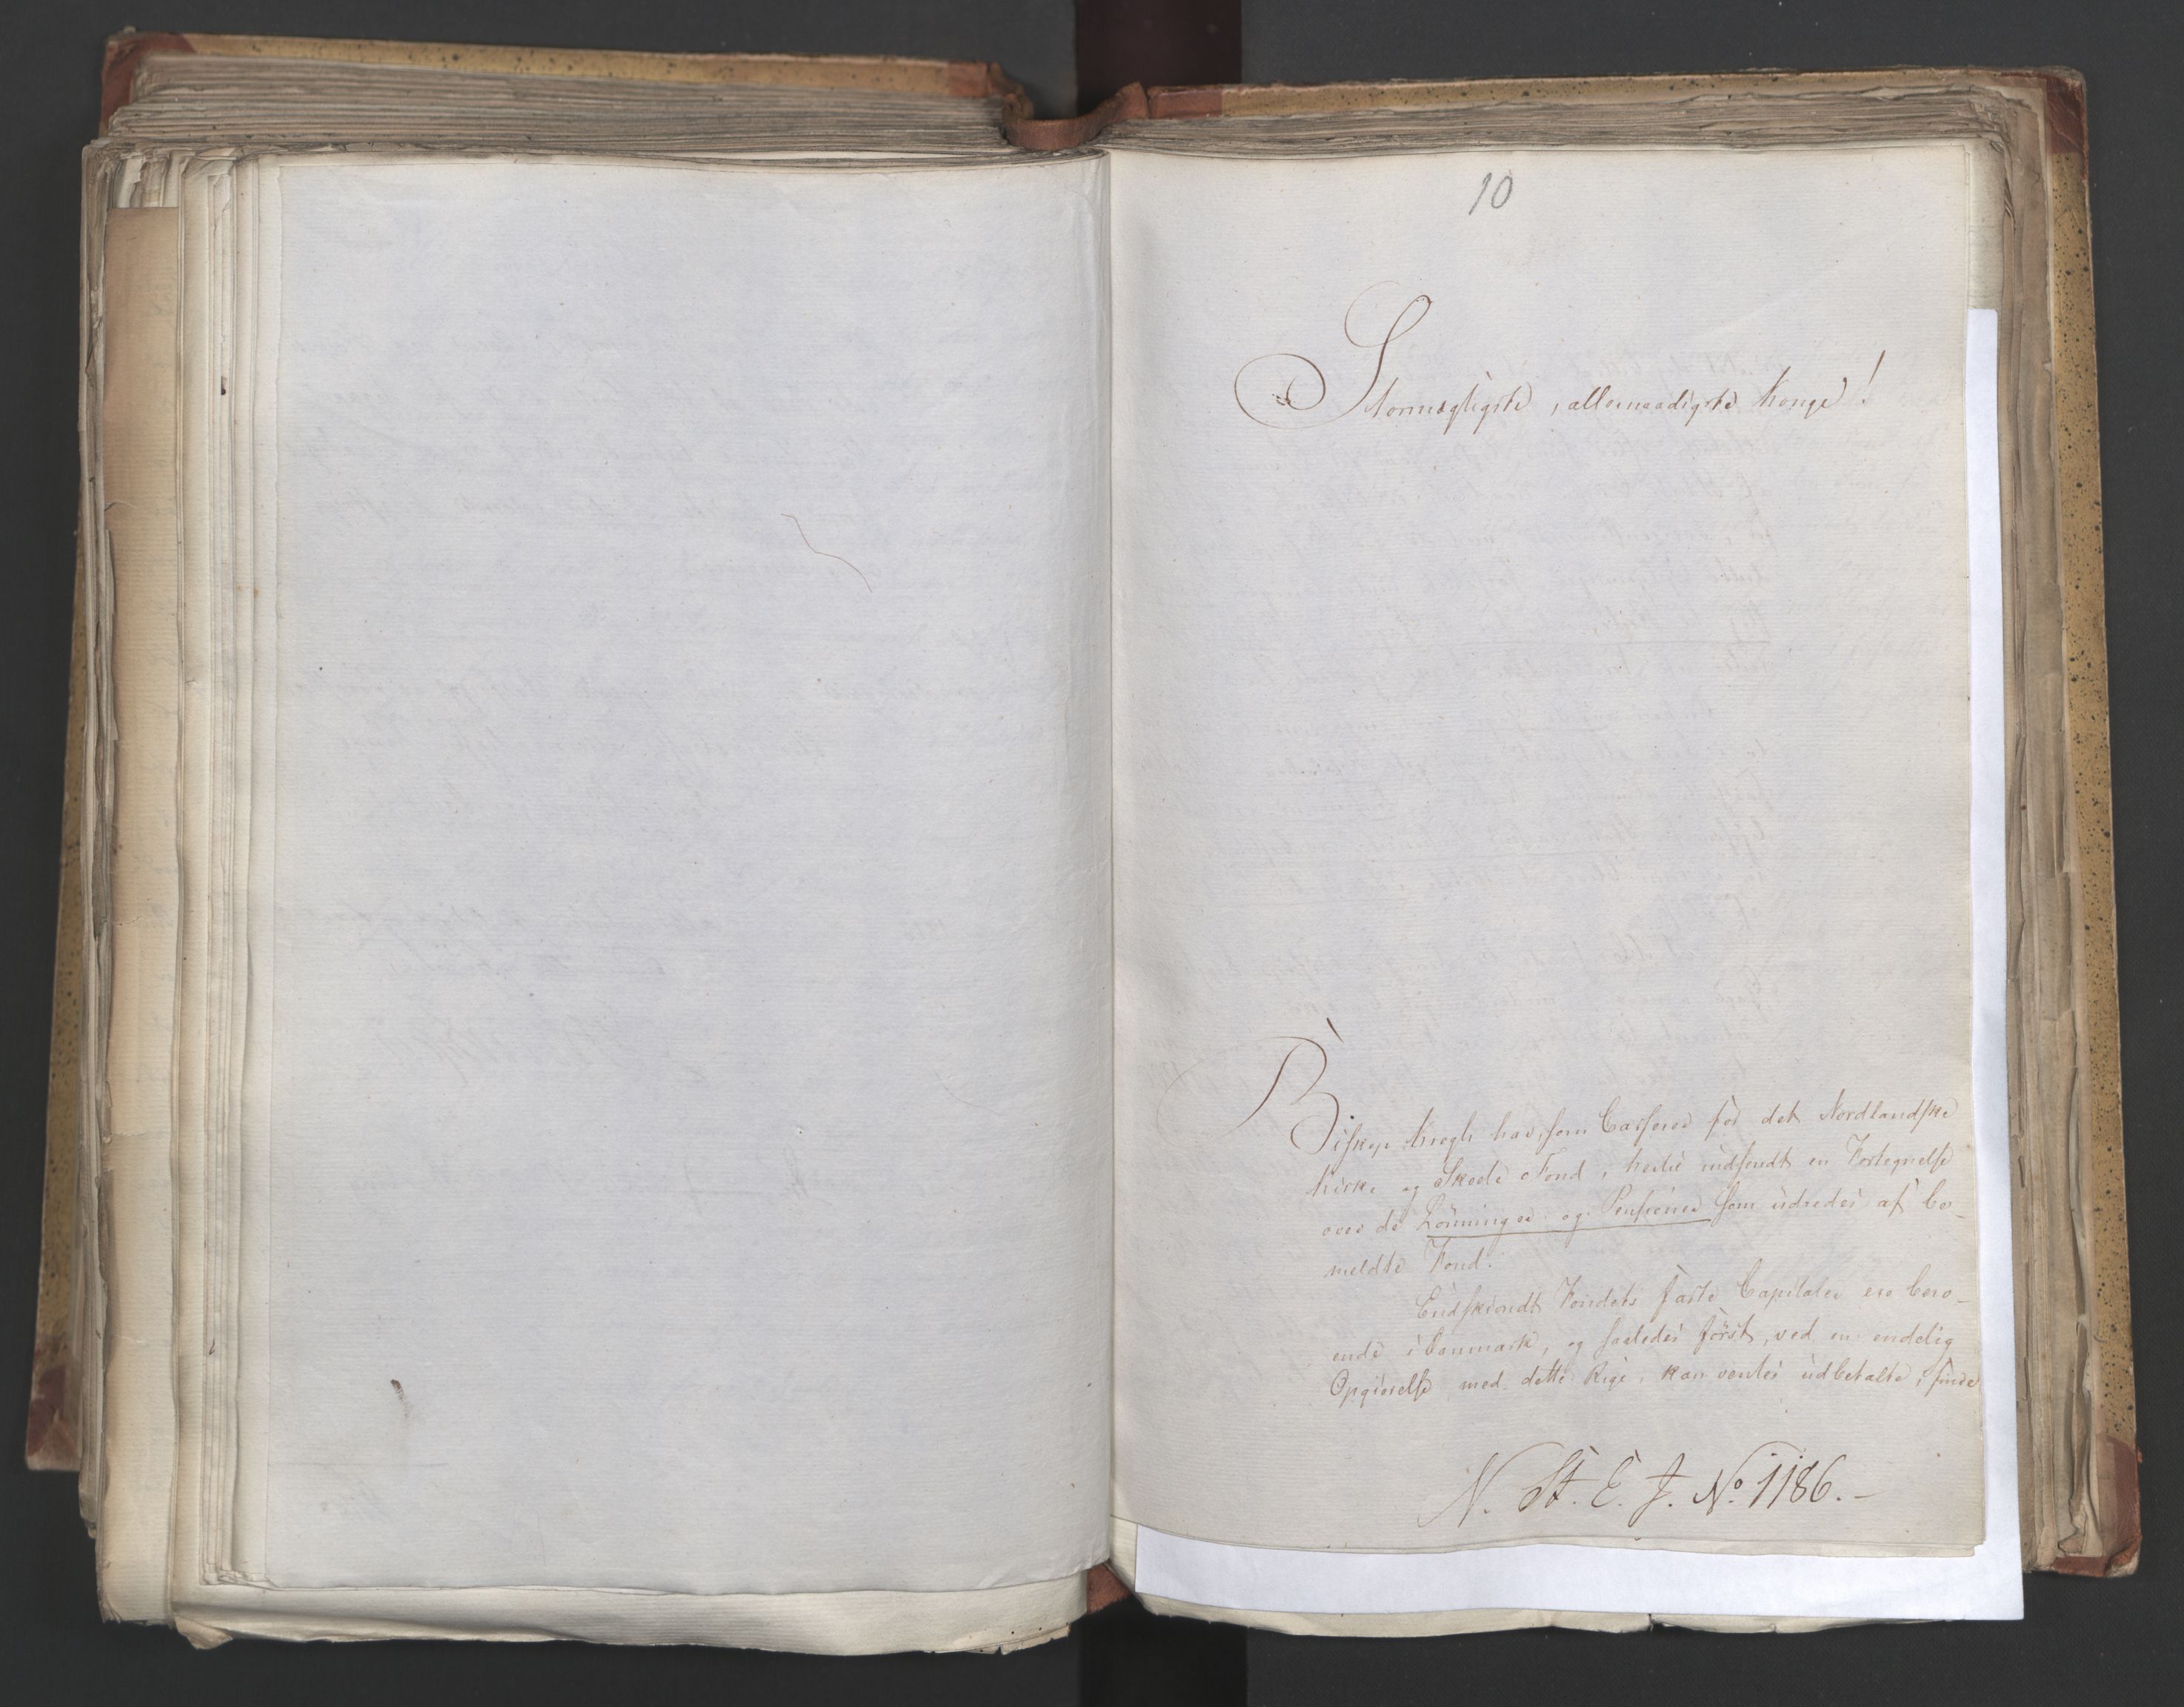 10
Stormægtigste, allernaadigste Konge!
Biskop Krogh har, som Casserer for det Nordlandske
Kirke og Skole Fond, hertil indsendt en Fortegnelse
over de Lönninger og Pensioner som udredes af be-
meldte Fond.
Endskiöndt Fondets faste Capitaler ere bero-
ende i Danmark, og saaledes först, ved en endelig
Opgiörelse med dette Rige, kan ventes udbetalte, finder
N. St. E. J. No. 1186.-